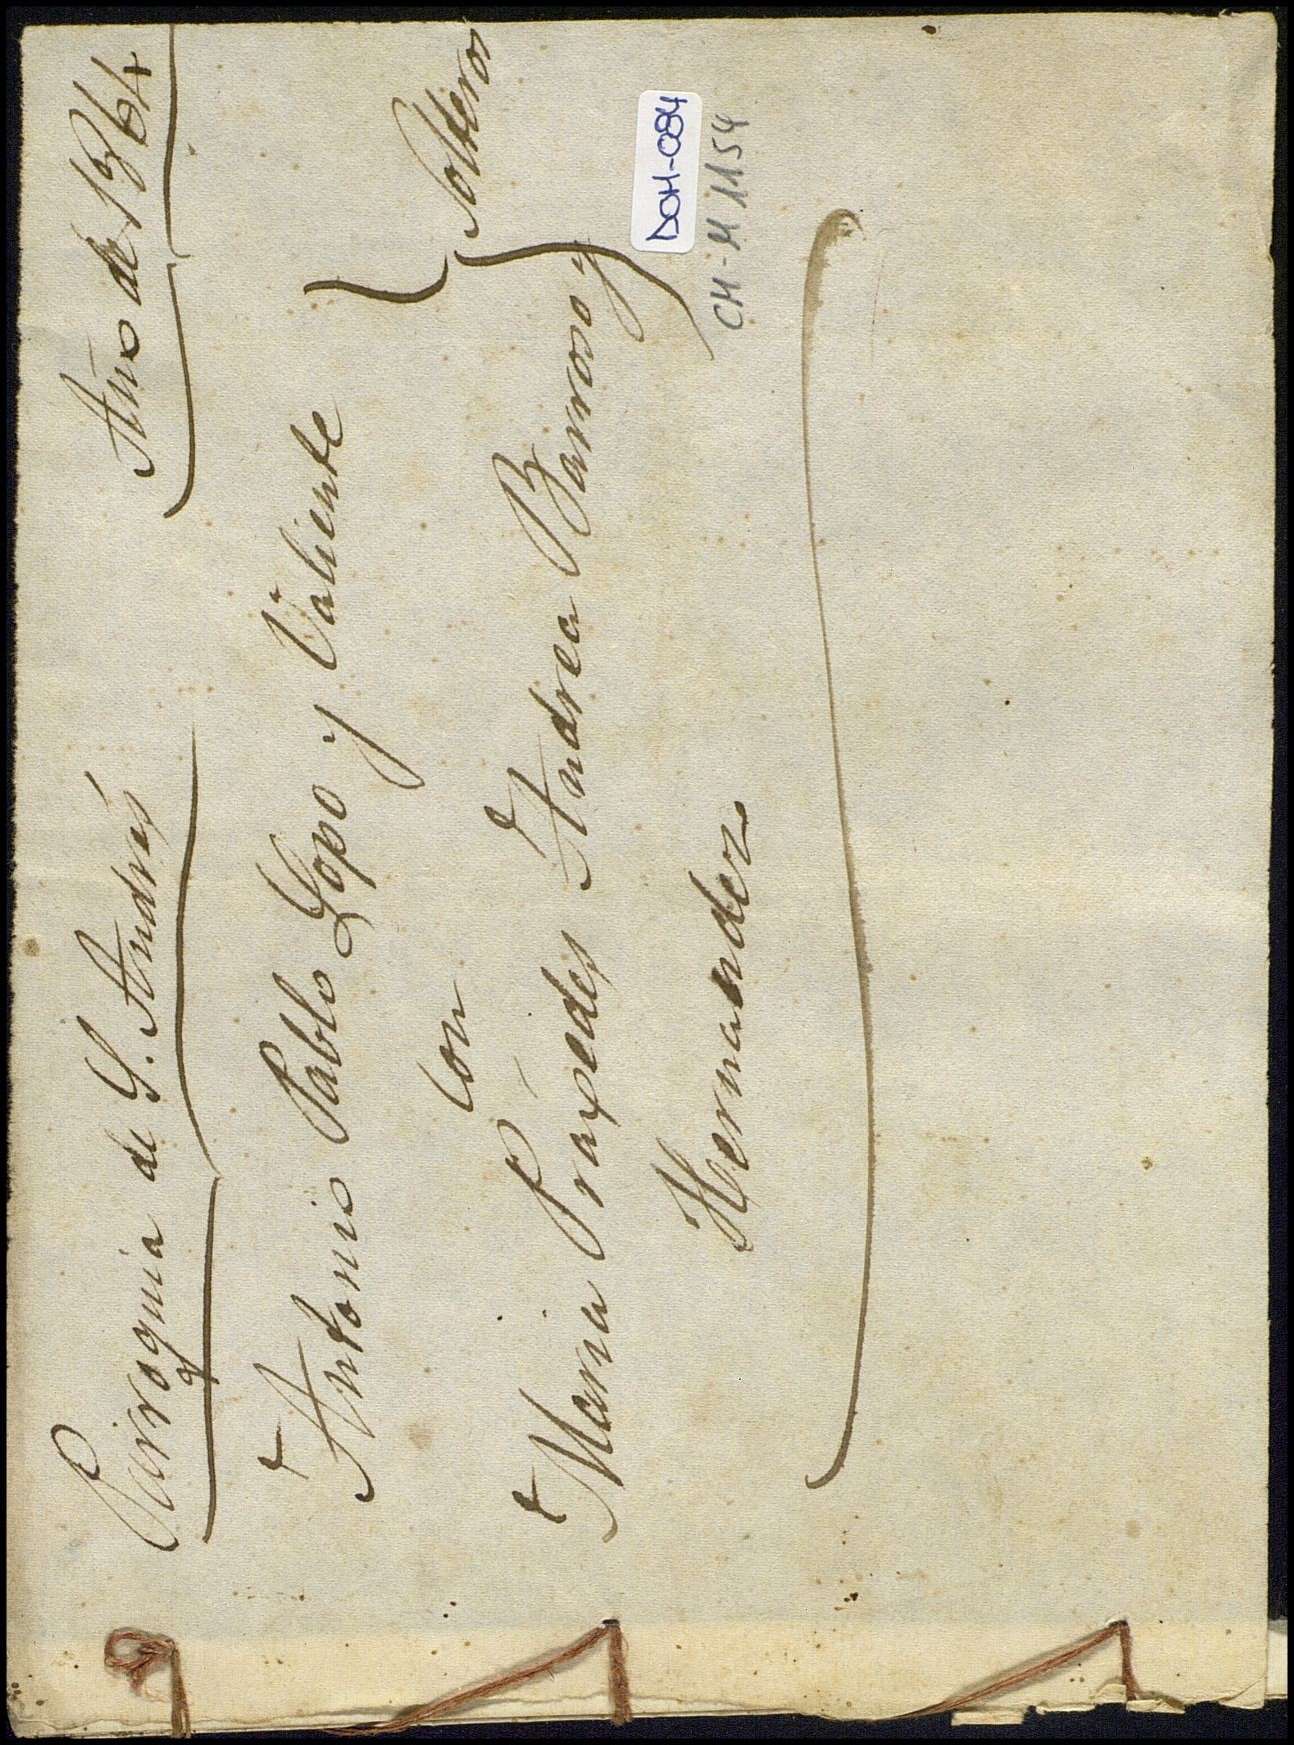 Parroquia de S. Andrés Año de 1864
Antonio Pablo Lopo y Valiente
con
Maria Praxedes Andrea Barroso y
Hernandez
Solteros
DOH-084
CM-M 1154